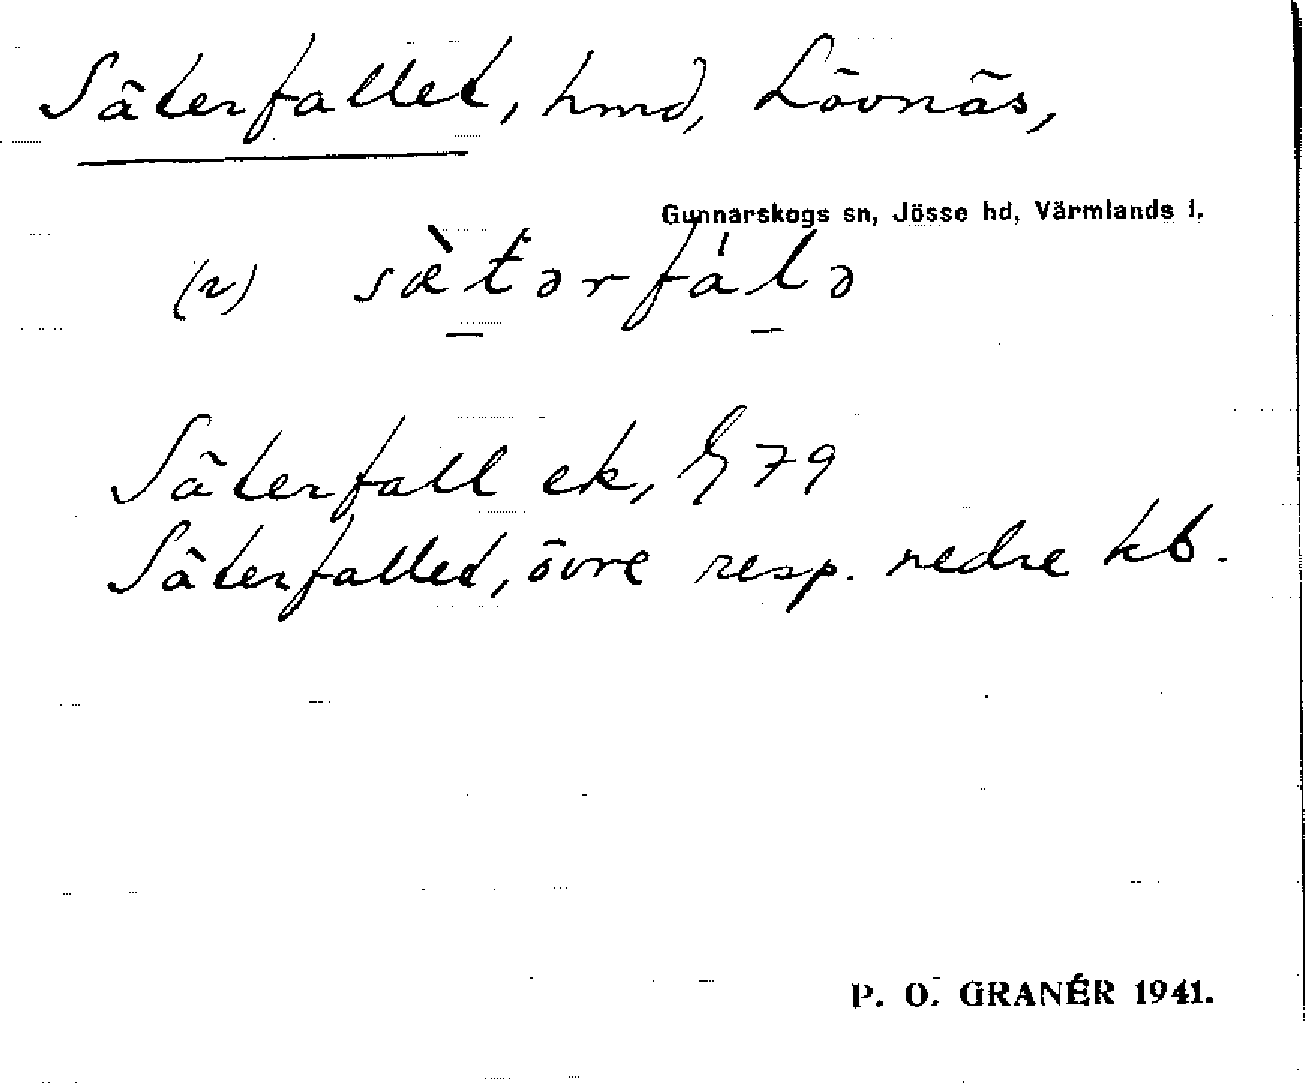 Säterfallet, hmd, Lövnäs,
Gunnarskogs sn, Jösse hd, Värmlands l.
(v) sæ̀tərfálə
Säterfall ek, G 79
Säterfallet, övre resp. nedre kb.
P. O. GRANÉR 1941.